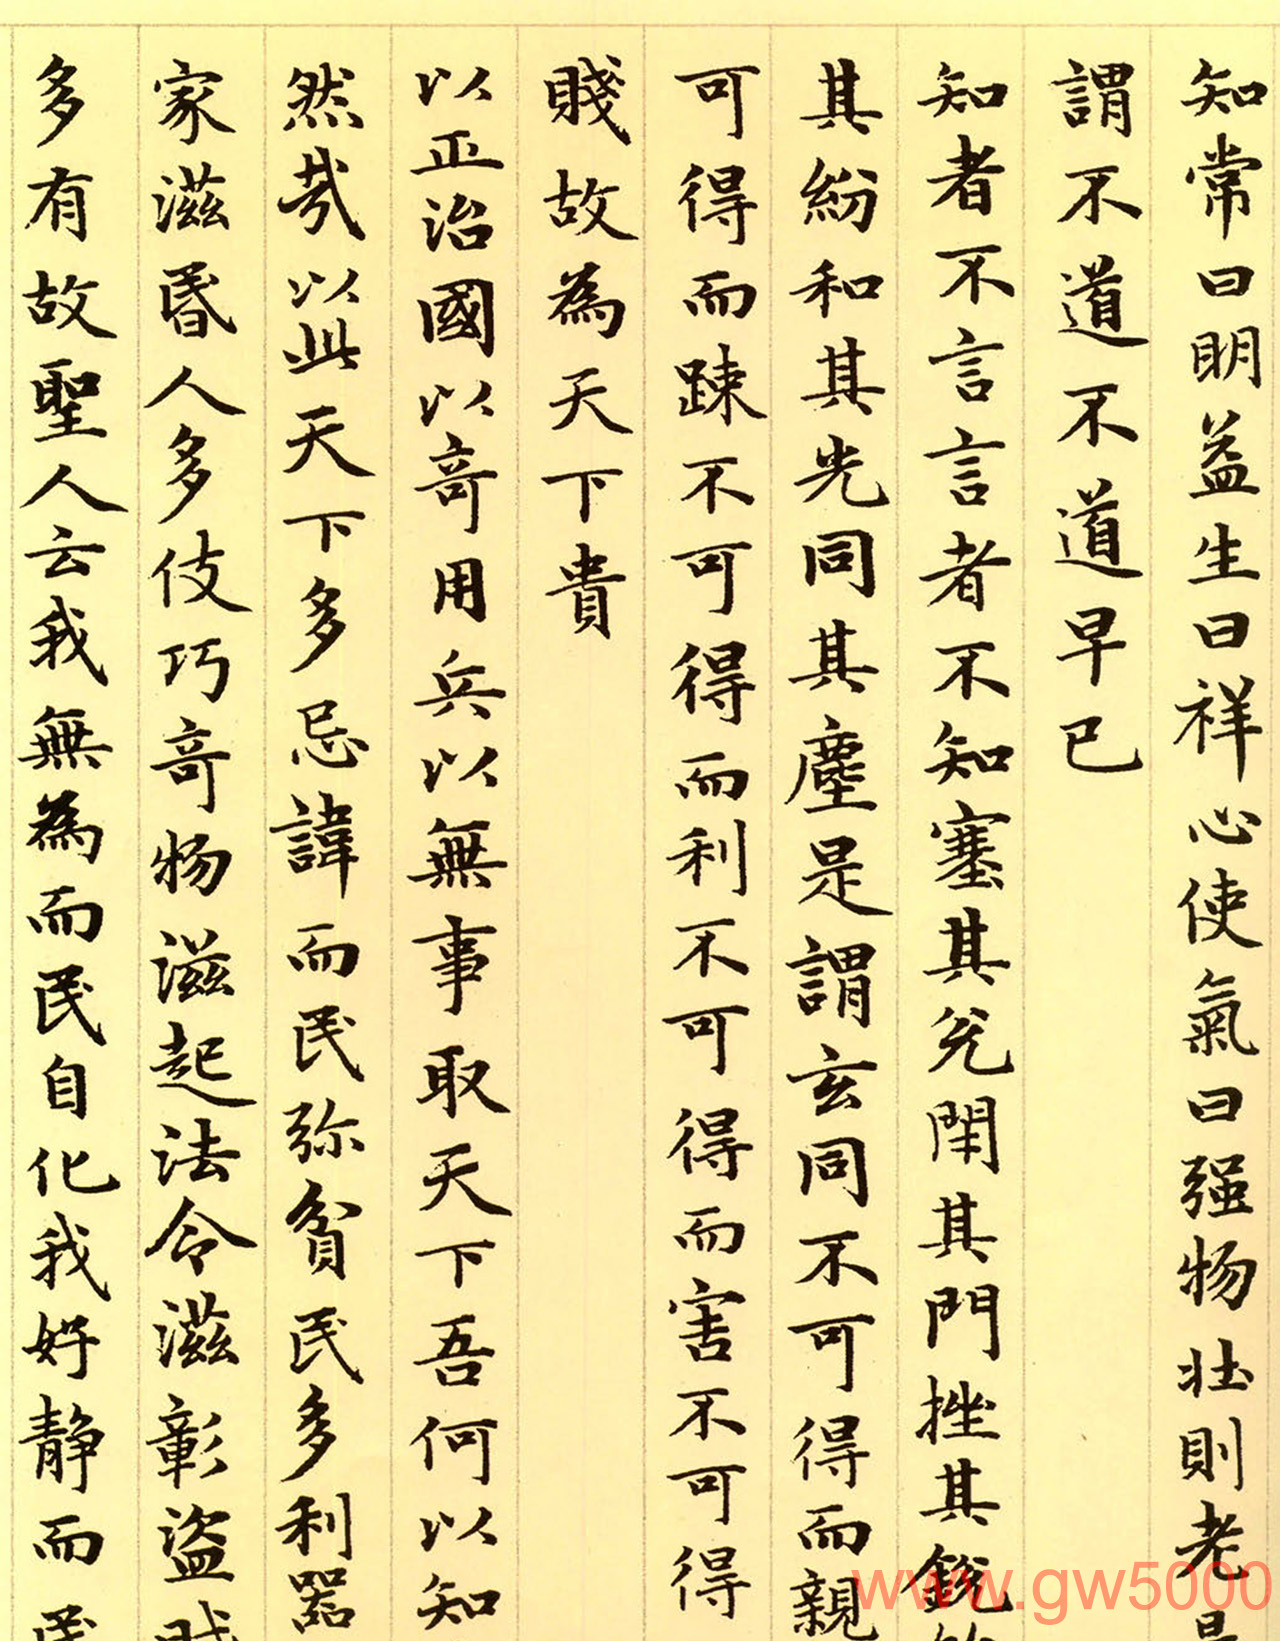 知常曰明益生曰祥心使氣曰强物壯則老是
謂不道不道早已
知者不言言者不知塞其兊閇其門挫其銳
其紛和其光同其塵是謂玄同不可得而親
可得而踈不可得而利不可得而害不可得
賤故為天下貴
以正治國以竒用兵以無事取天下吾何以知
然㢤以此天下多忌諱而民弥貧民多利器
家滋昬人多伎巧竒物滋起法令滋彰盜賊
多有故聖人云我無為而民自化我好静而民
www.gw5000